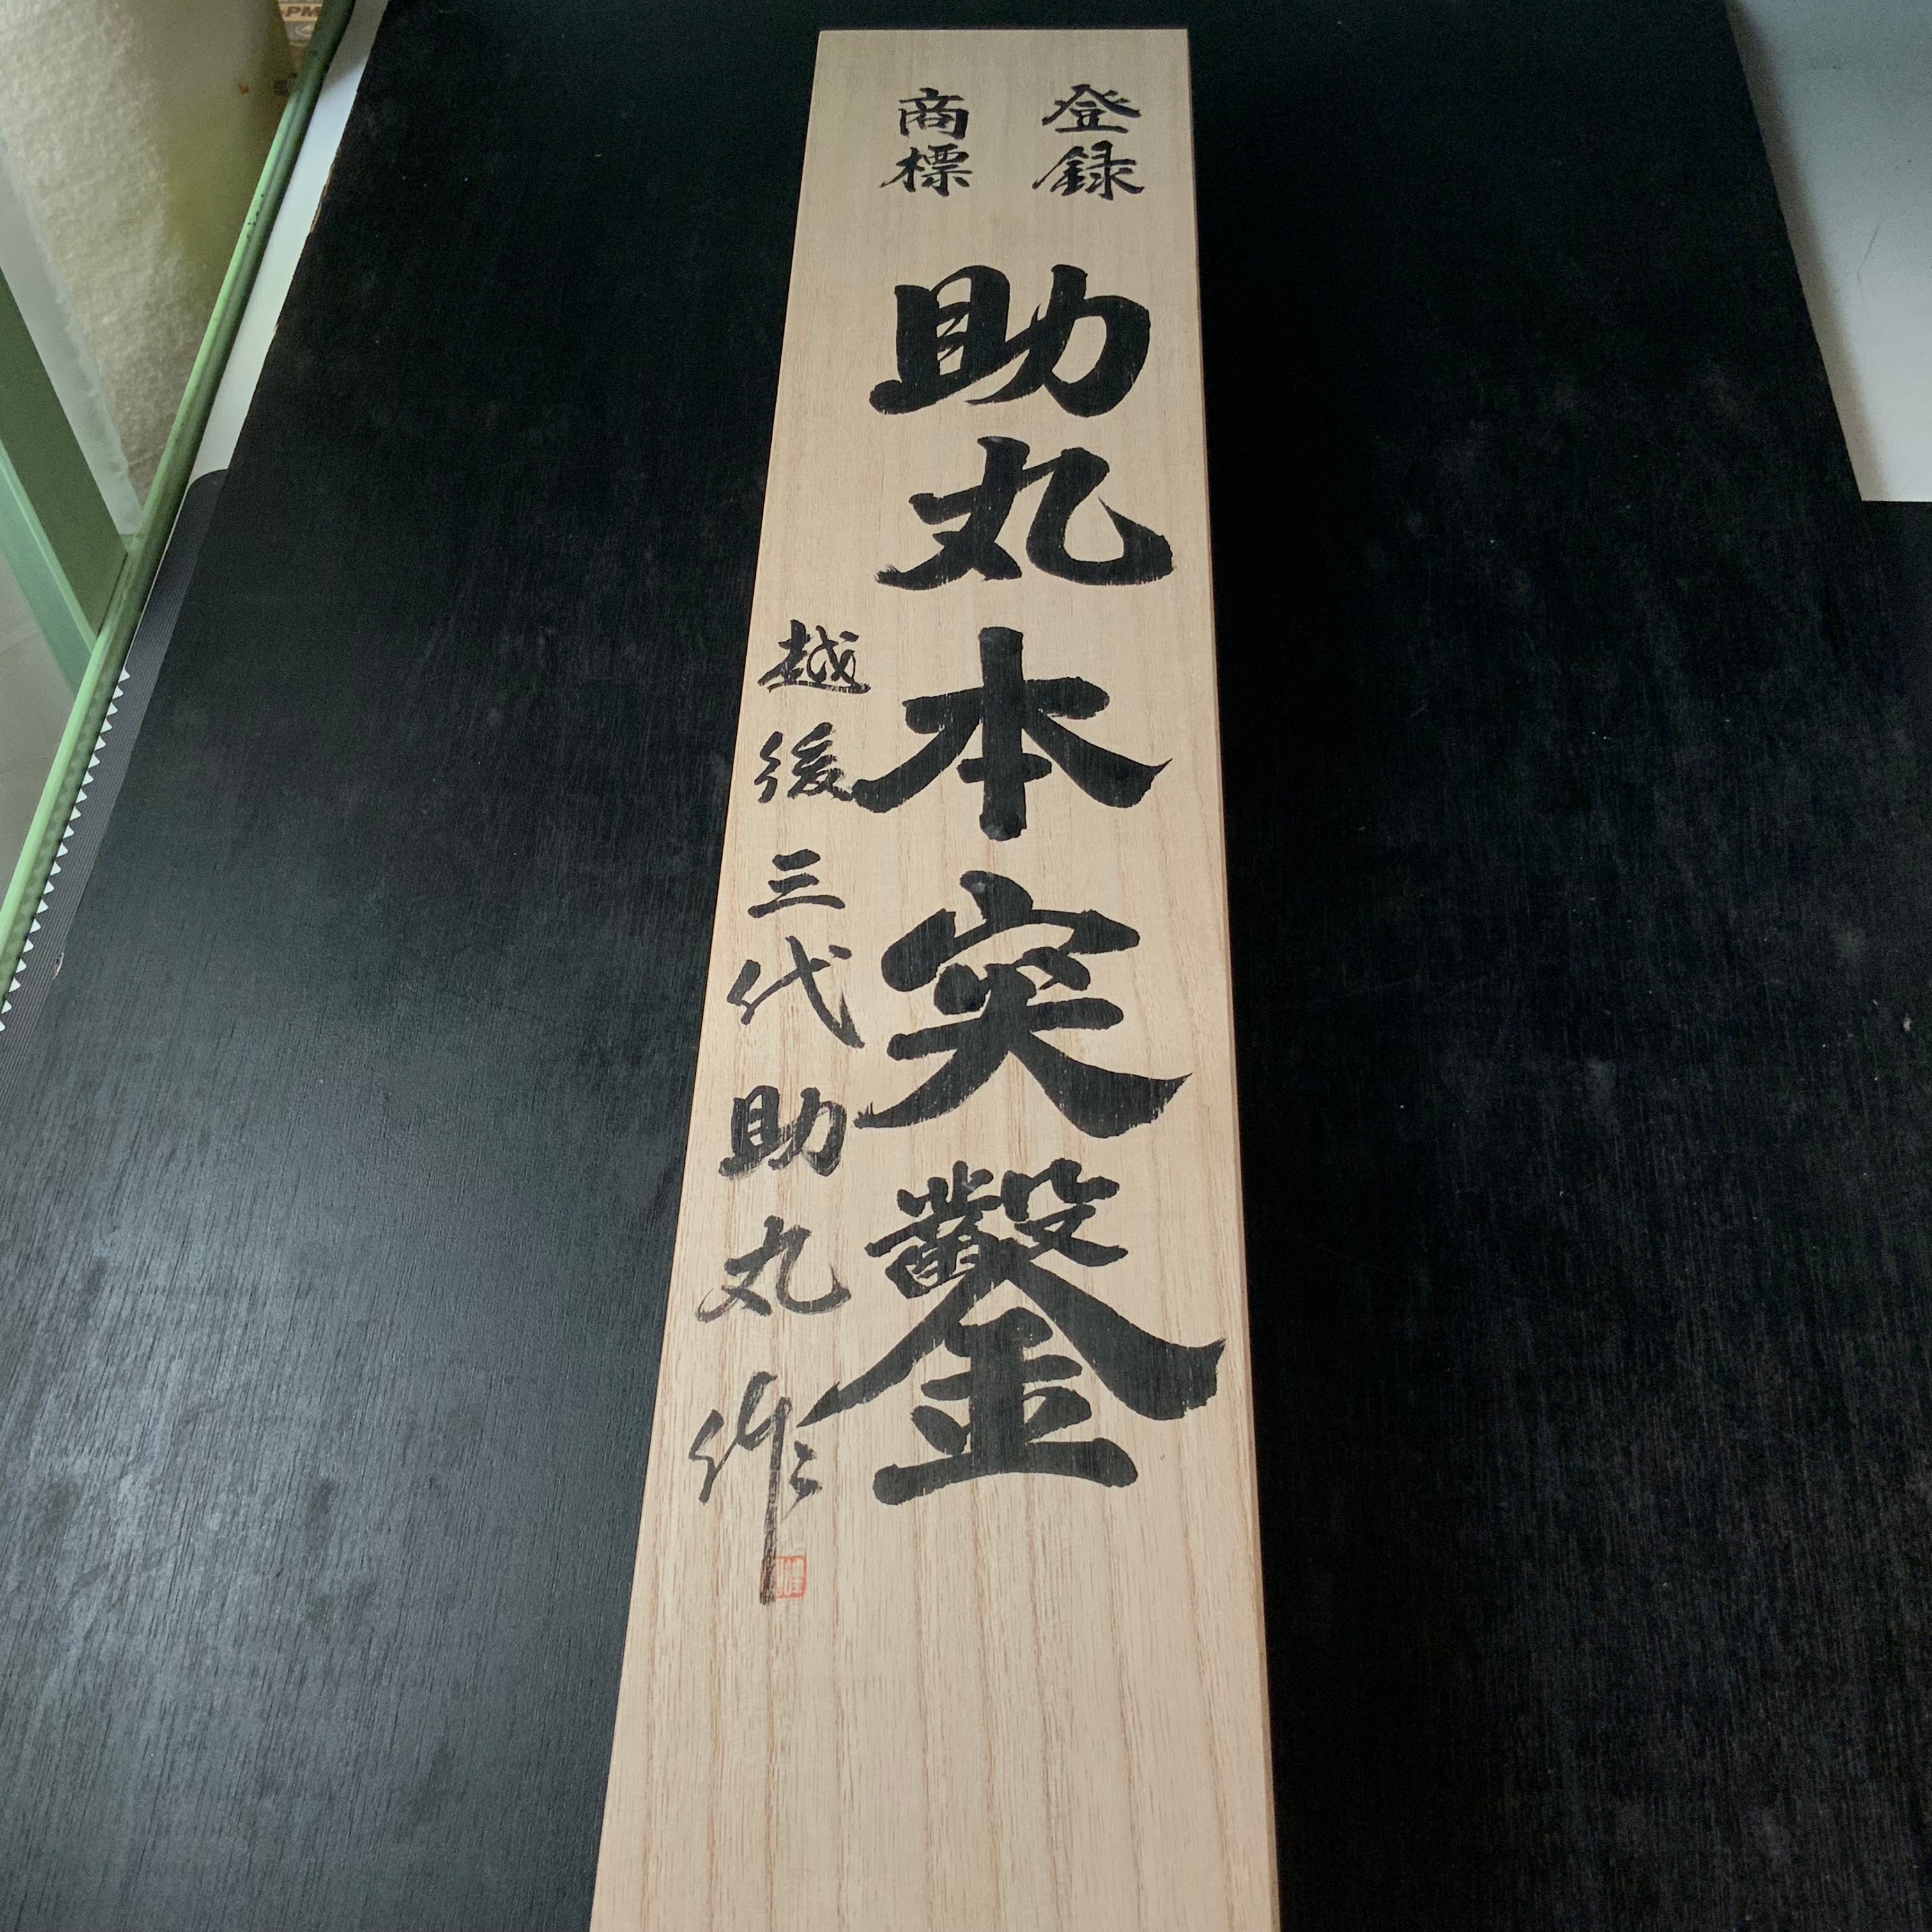 登録
商標
助丸本突鑿
越後三代助丸作
PM